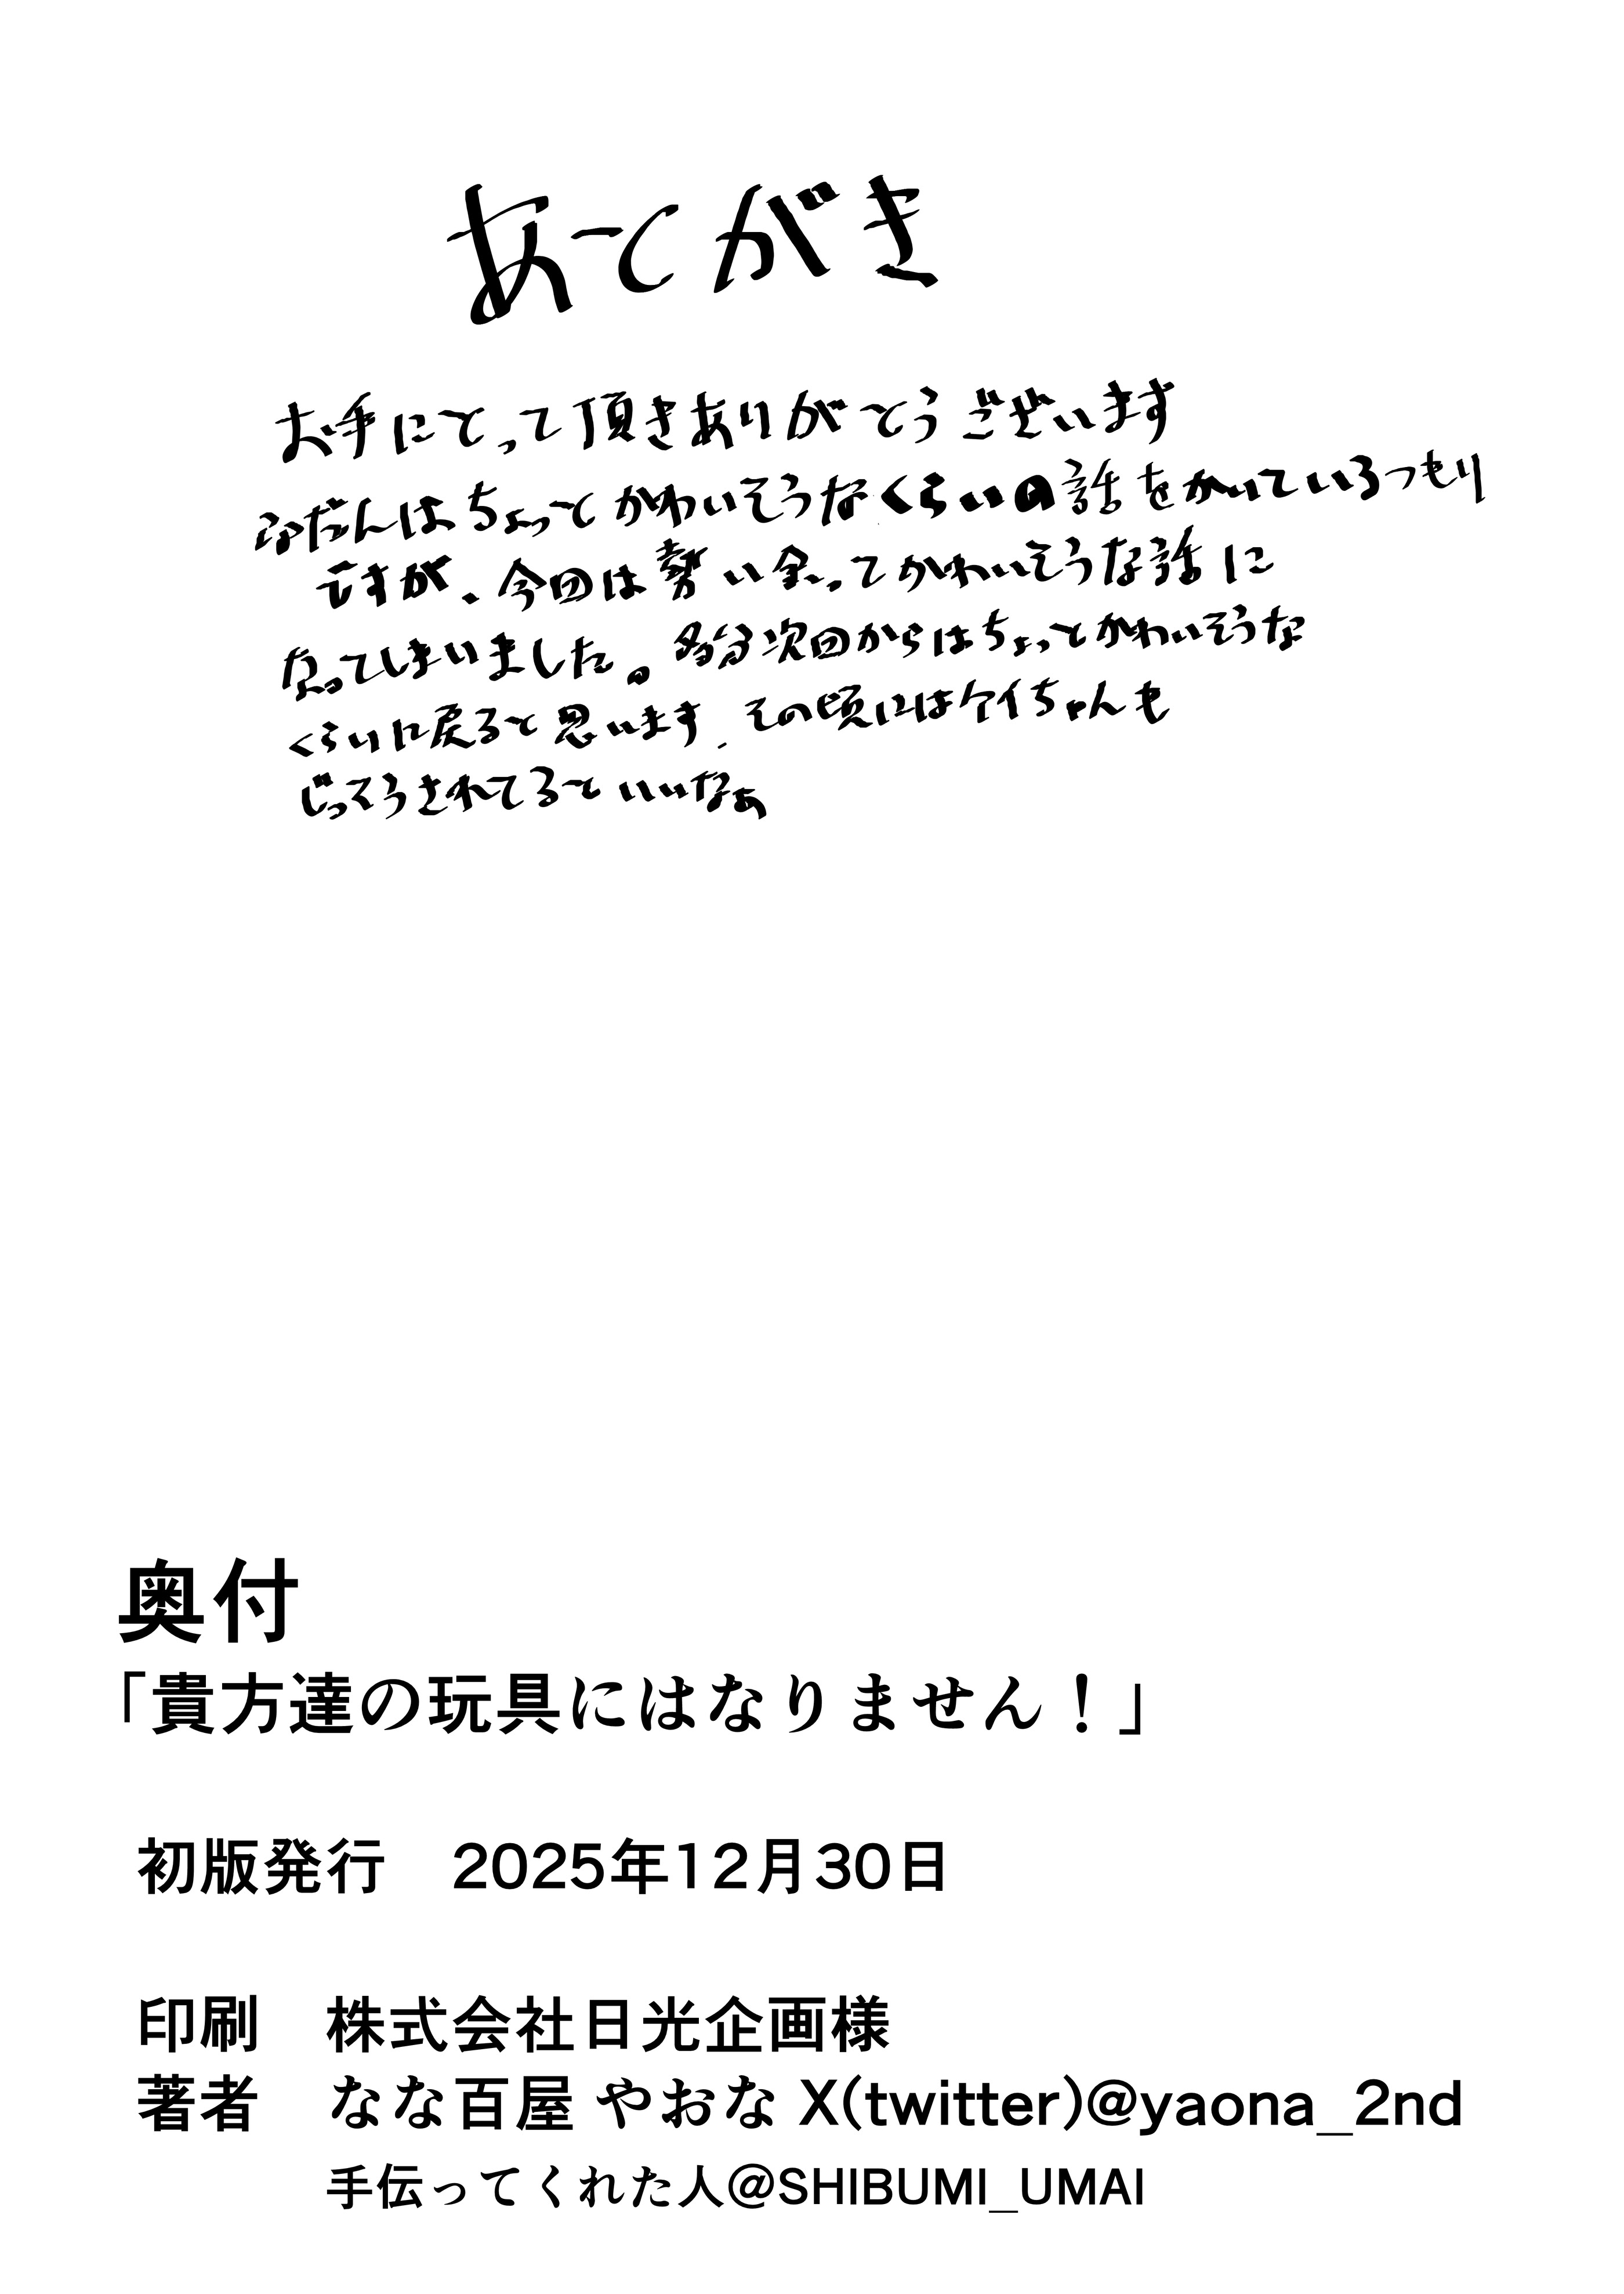 あとがき
お手にとって頂きありがとうございます
ふだんはちょっとかわいそうなくらいの話をかいているつもり
ですが、今回は勢い余ってかわいそうな話に
なってしまいました。多分次回からはちょっとかわいそうな
くらいに戻ると思います。その頃にはケイちゃんも
じっそうされてるといいなぁ
奥付
「貴方達の玩具にはなりません！」
初版発行　2025年12月30日
印刷　株式会社日光企画様
著者　なな百屋 やおな X(twitter)@yaona_2nd
手伝ってくれた人@SHIBUMI_UMAI